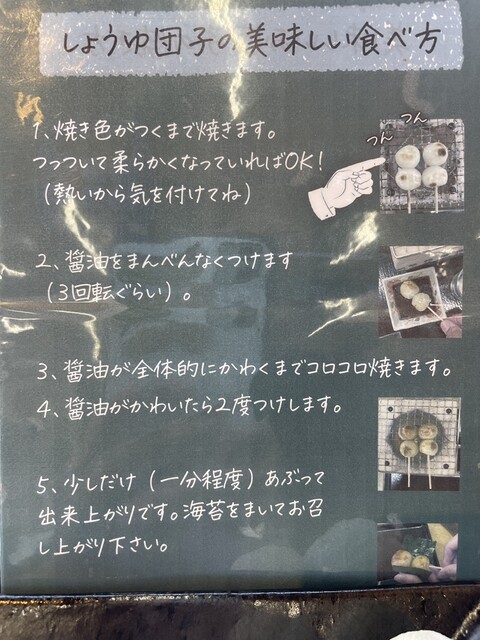 しょうゆ団子の美味しい食べ方
1、焼き色がつくまで焼きます。
つっついて柔らかくなっていればOK!
(熱いから気を付けてね)
つん
つん
2、醤油をまんべんなくつけます
(3回転ぐらい)。
3、醤油が全体的にかわくまでコロコロ焼きます。
4、醤油がかわいたら2度つけします。
5、少しだけ(一分程度)あぶって
出来上がりです。海苔をまいてお召
し上がり下さい。